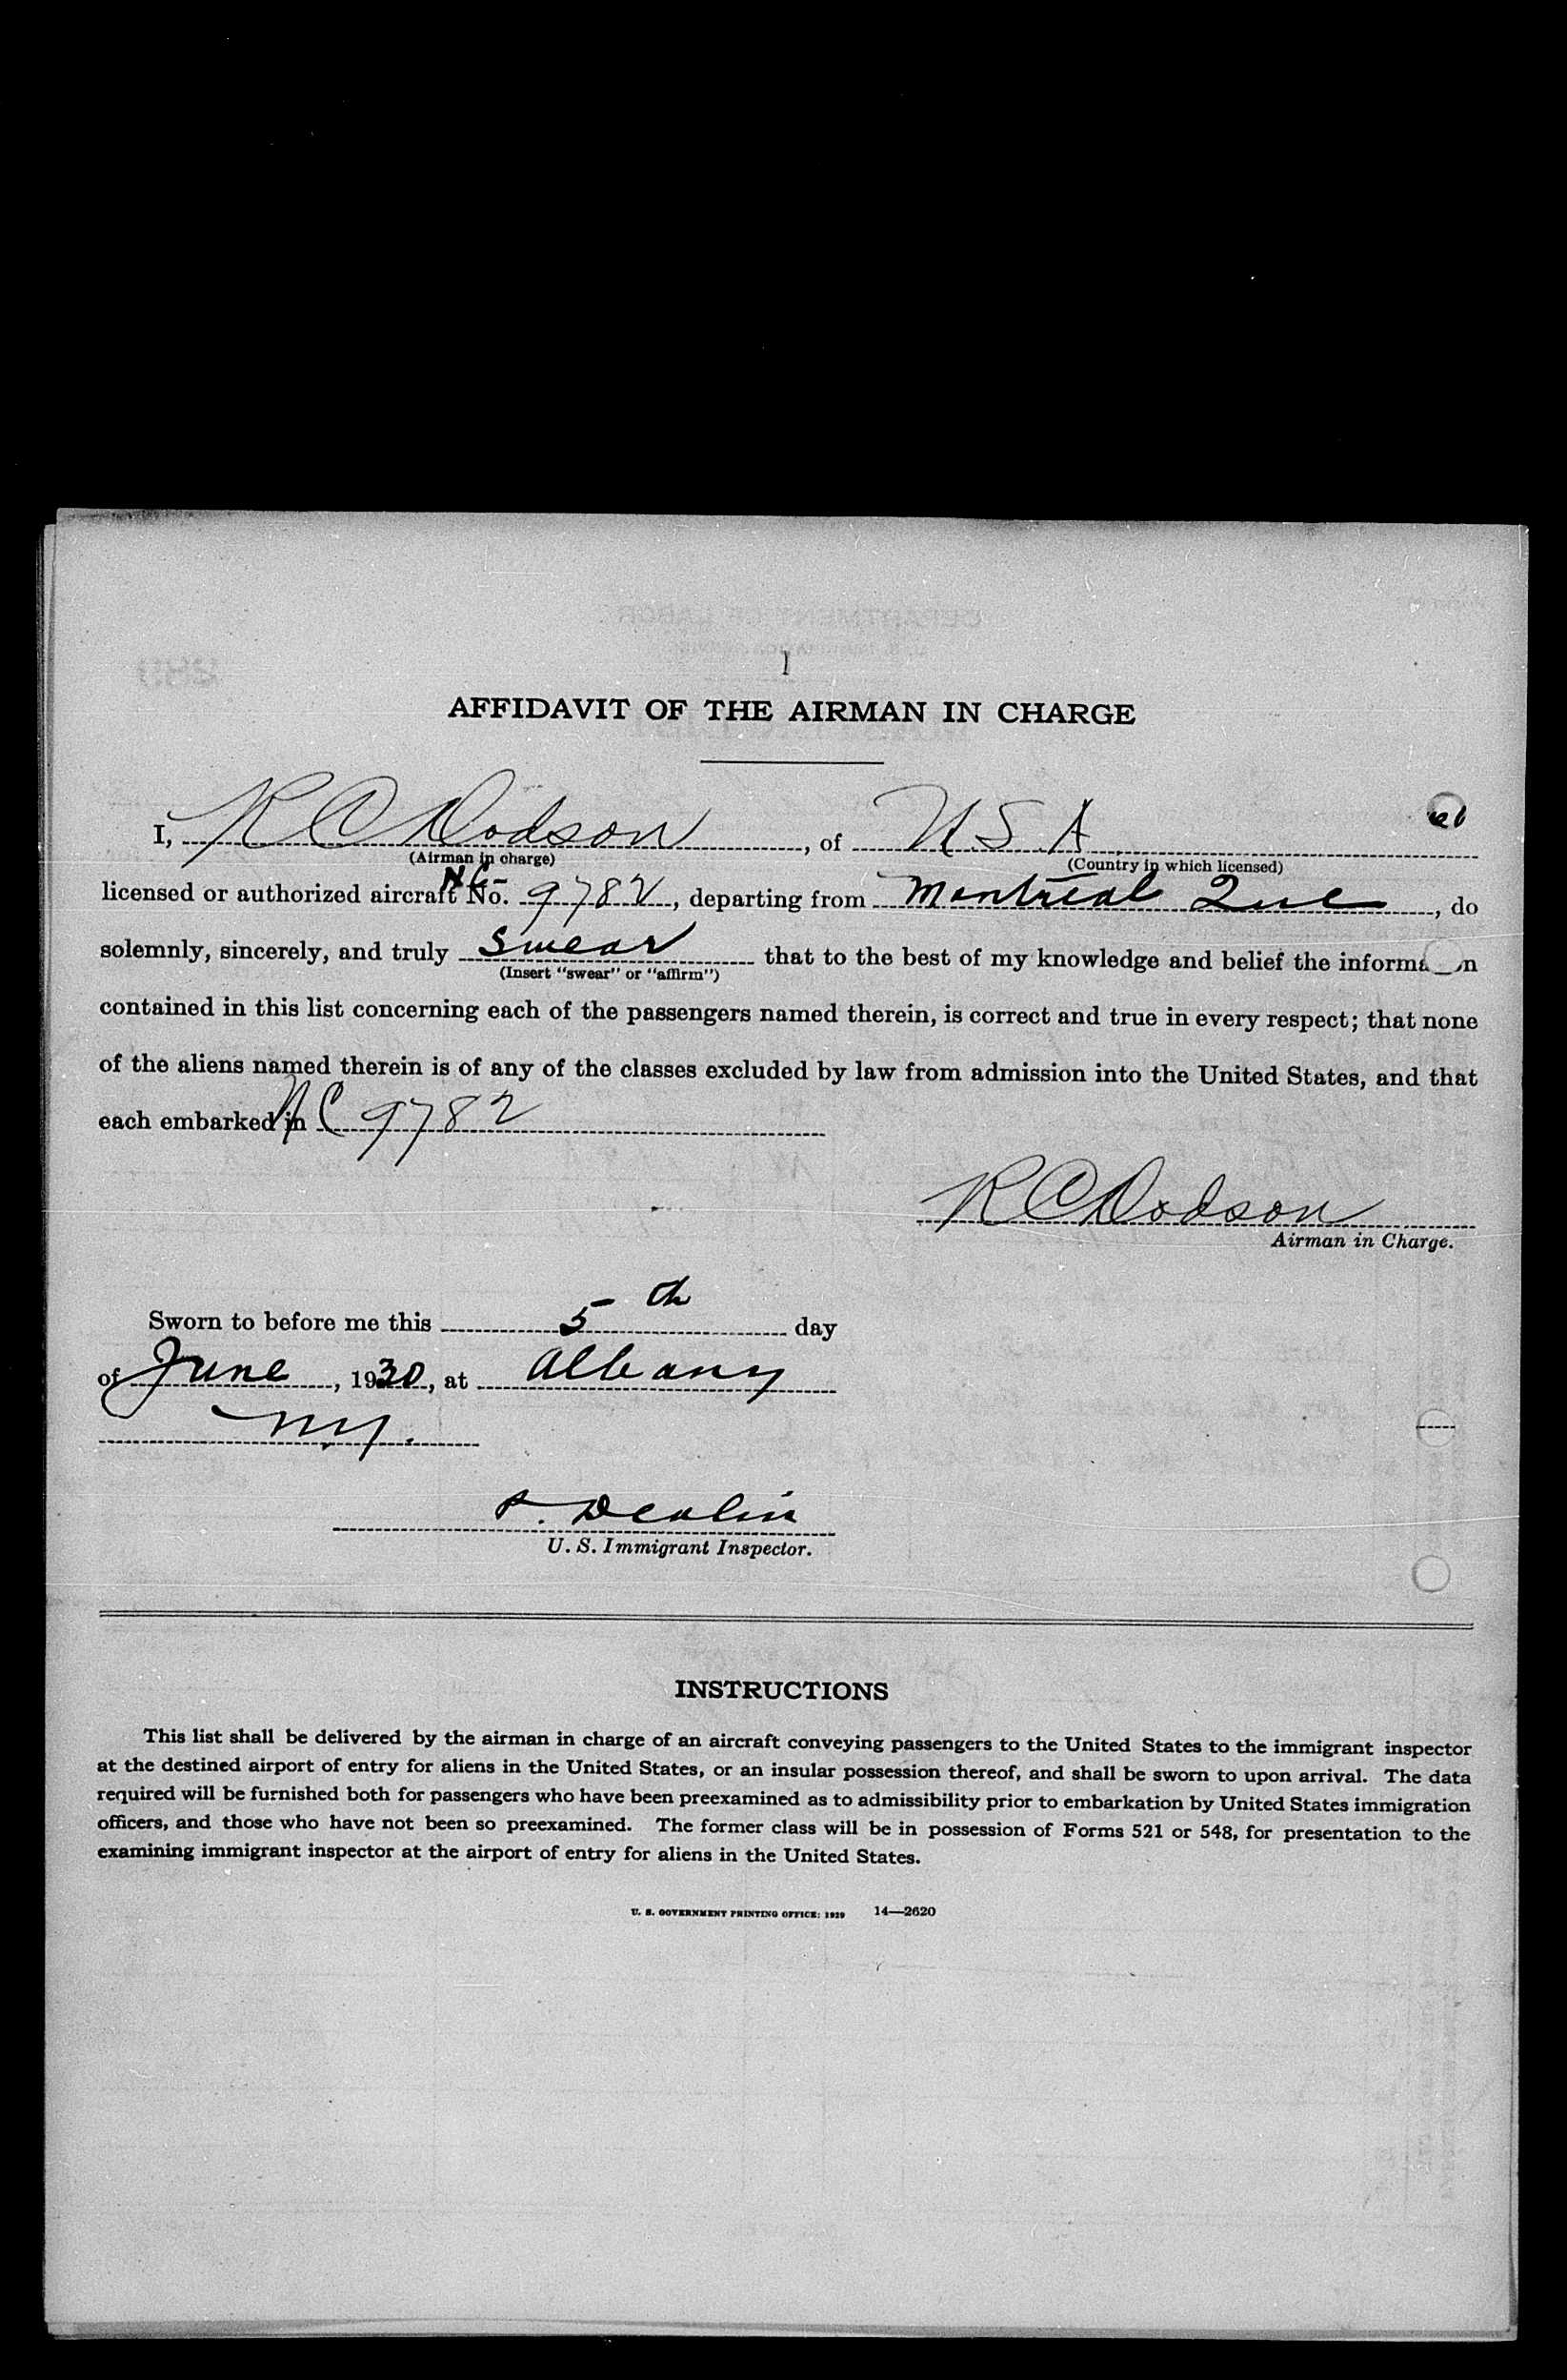 AFFIDAVIT OF THE AIRMAN IN CHARGE
I, R C Dodson, of U.S.A
(Airman in charge) (Country in which licensed)
NC-
licensed or authorized aircraft No. 9782, departing from Montreal Que, do
solemnly, sincerely, and truly swear that to the best of my knowledge and belief the informa n
(Insert "swear" or "affirm")
contained in this list concerning each of the passengers named therein, is correct and true in every respect; that none
of the aliens named therein is of any of the classes excluded by law from admission into the United States, and that
each embarked in NC 9782
R C Dodson
Airman in Charge.
Sworn to before me this 5th day
of June, 1930, at Albany
N.Y.
U. S. Immigrant Inspector.
INSTRUCTIONS
This list shall be delivered by the airman in charge of an aircraft conveying passengers to the United States to the immigrant inspector
at the destined airport of entry for aliens in the United States, or an insular possession thereof, and shall be sworn to upon arrival. The data
required will be furnished both for passengers who have been preexamined as to admissibility prior to embarkation by United States immigration
officers, and those who have not been so preexamined. The former class will be in possession of Forms 521 or 548, for presentation to the
examining immigrant inspector at the airport of entry for aliens in the United States.
U. S. GOVERNMENT PRINTING OFFICE: 1929 14—2620